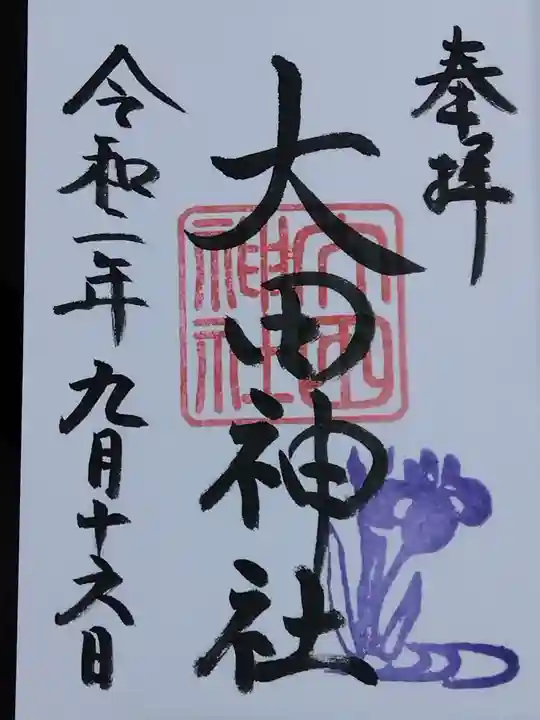 奉拝
大田神社
大田神社
令和二年九月十六日